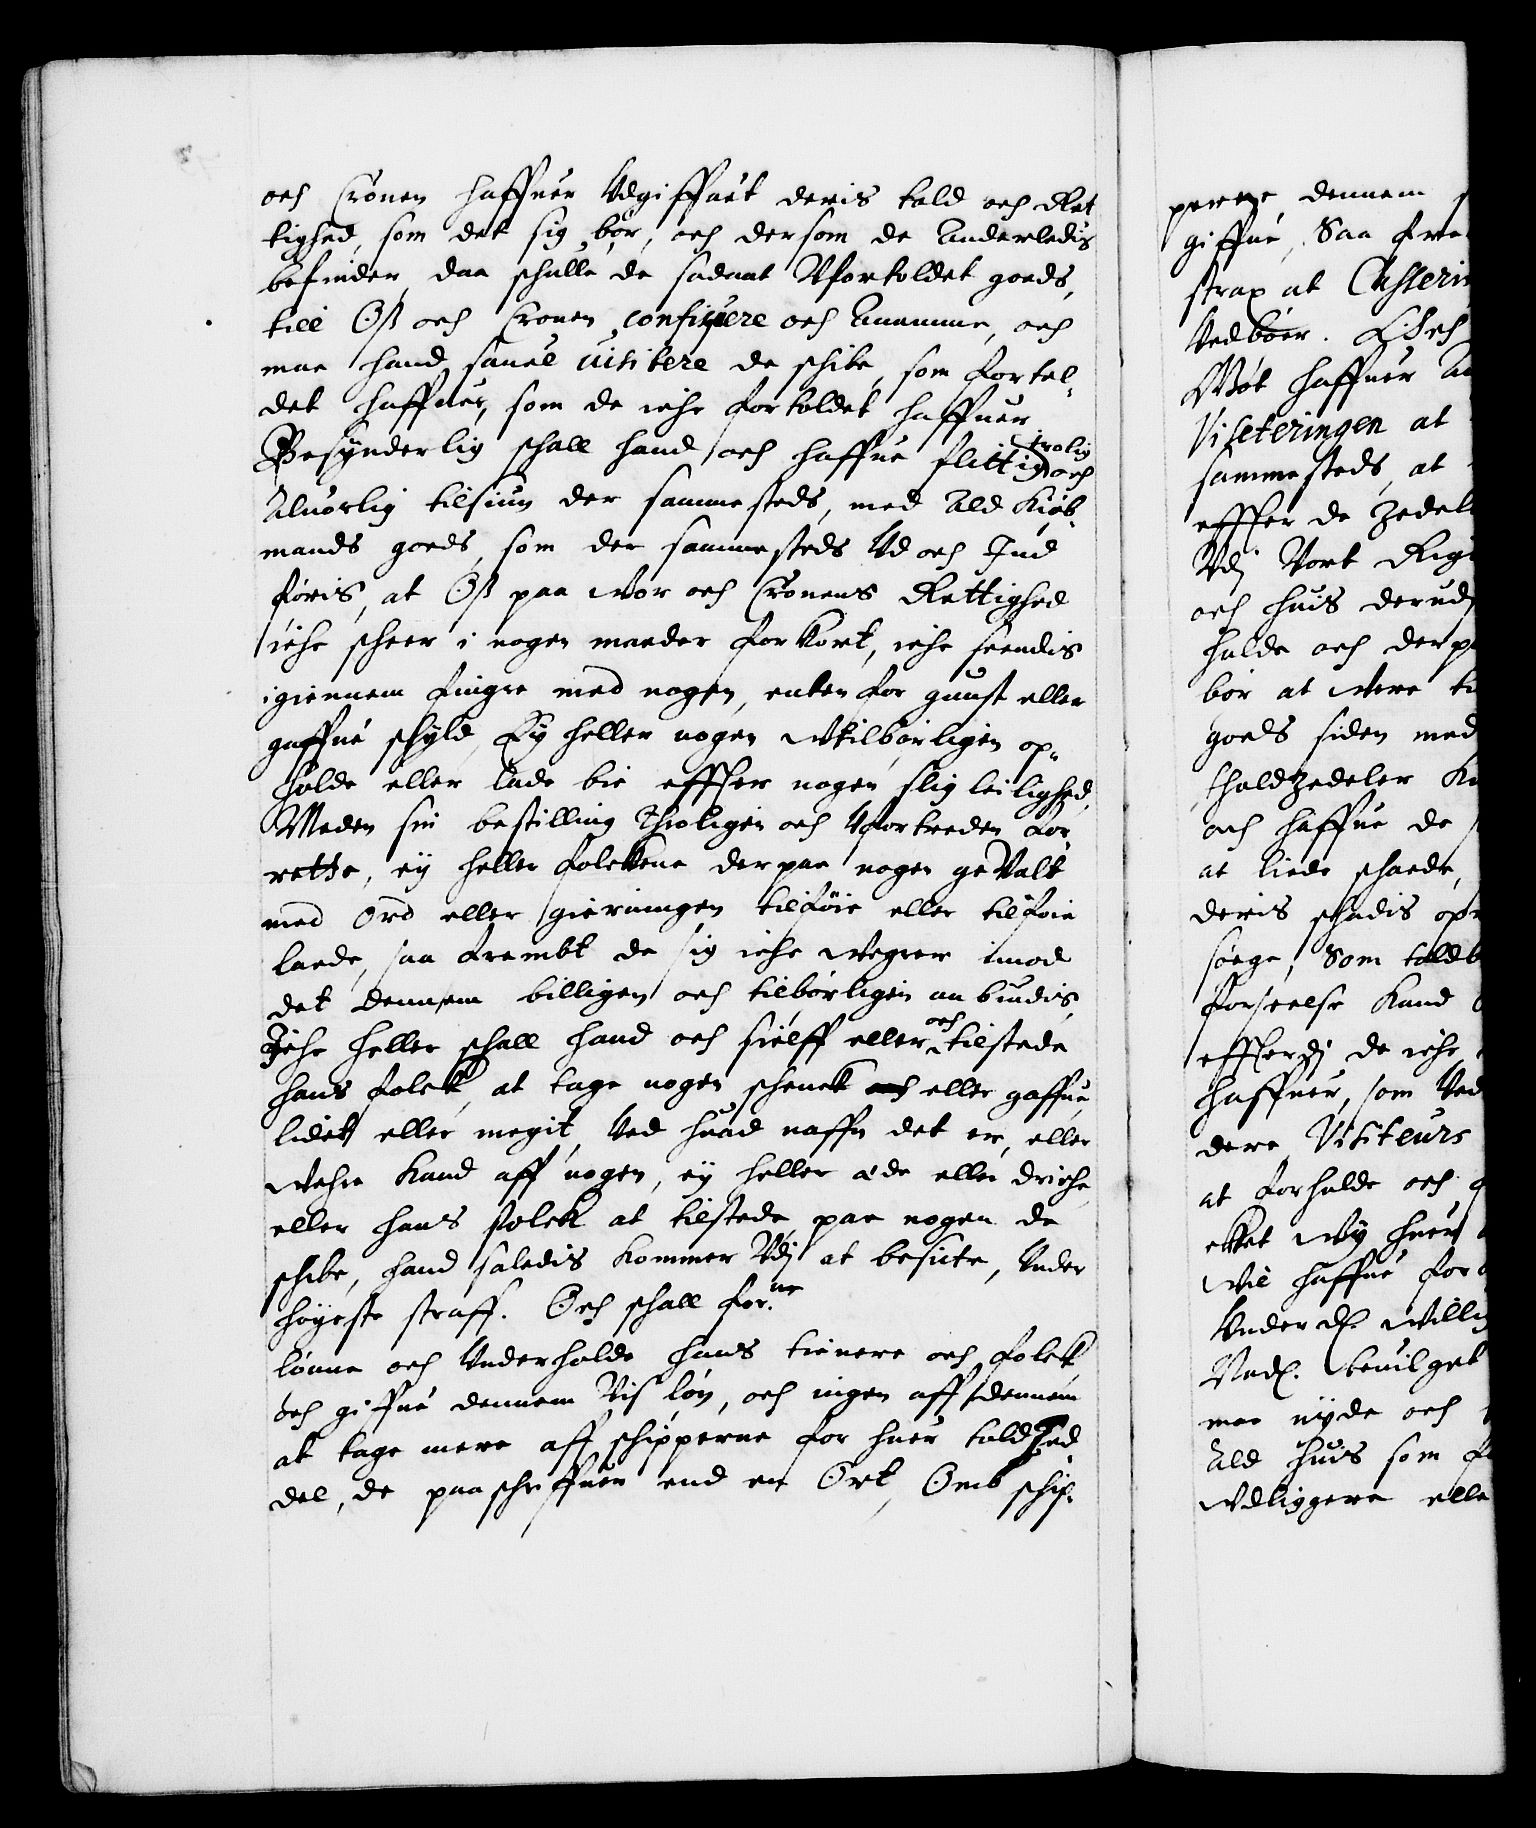 och Cronen haffuer Udgiffuet deris told och Ret
tighed, som det sig bør, och dersom de Anderledis
befinder, daa schulle de sadant Ufortoldet goeds,
till Oss och Cronen confisqvere och Anamme, och
maa hand saauel uisitere de schibe, som fortol-
det haffuer, som de iche fortoldet haffuer
Besynderlig schall hand och haffue flittig trolig och
Aluorlig tilsiun der sammesteds, med Ald Kiøb-
mands goeds, som der sammesteds Ud och Ind
føris, at Oss paa wor och Cronens Rettighed
iche scheer i nogen maader forKort, iche seendis
igiennem fingre med nogen, enten for gunst eller
gaffue schyld, Ey heller nogen utilbørligen op-
holde eller lade bie effter nogen slig leilighed,
Meden sin bestilling Throligen och Ufortreden for
rette, ey heller folckene derpaa nogen geValt
med Ord eller gierningen tilføie eller tilføie
laede, saa frembt de sig iche wegrer imod
det dennem billigen och tilbørligen anbiudis,
Iche heller schall hand och sielff eller och tilstede
hans folck, at tage nogen schenck eller gaffue,
lidet eller megit, Ved huad naffn det er, eller
wehre Kand aff nogen, ey heller æde eller driche
eller hans folck at tilstede, paa nogen de
schibe, hand saledis kommer Udj at besicte, Under
høyeste straff. Och schall for:ne
lønne och Underholde hans tienere och folck
och giffue dennem Vis løn, och ingen aff dennem
at tage mere aff schipperne for huer told Zed
del, de paaschriffuer end en Ort, Omb schip-

perne dennem
giffue, Saa fre
strax at Casseri
Vedbøer. 
Møt haffuer
Viseteringen at
sammesteds, at
effter de Zedel
Udj Vort Rig
och huis derudj
holde och derp
bør at were
goeds siden med
tholdzedeler
och haffue de
at liede schaede,
deris schadis op
søege, Som told
forseelse Kand
effterdj de iche
haffuer, som Ved
dere Visiteurs
at forholde och
ekket Wy huer
wil haffue for
Under d: willig
Naad: beuilget
maa nyde och
Ald huis som
udliggere elle